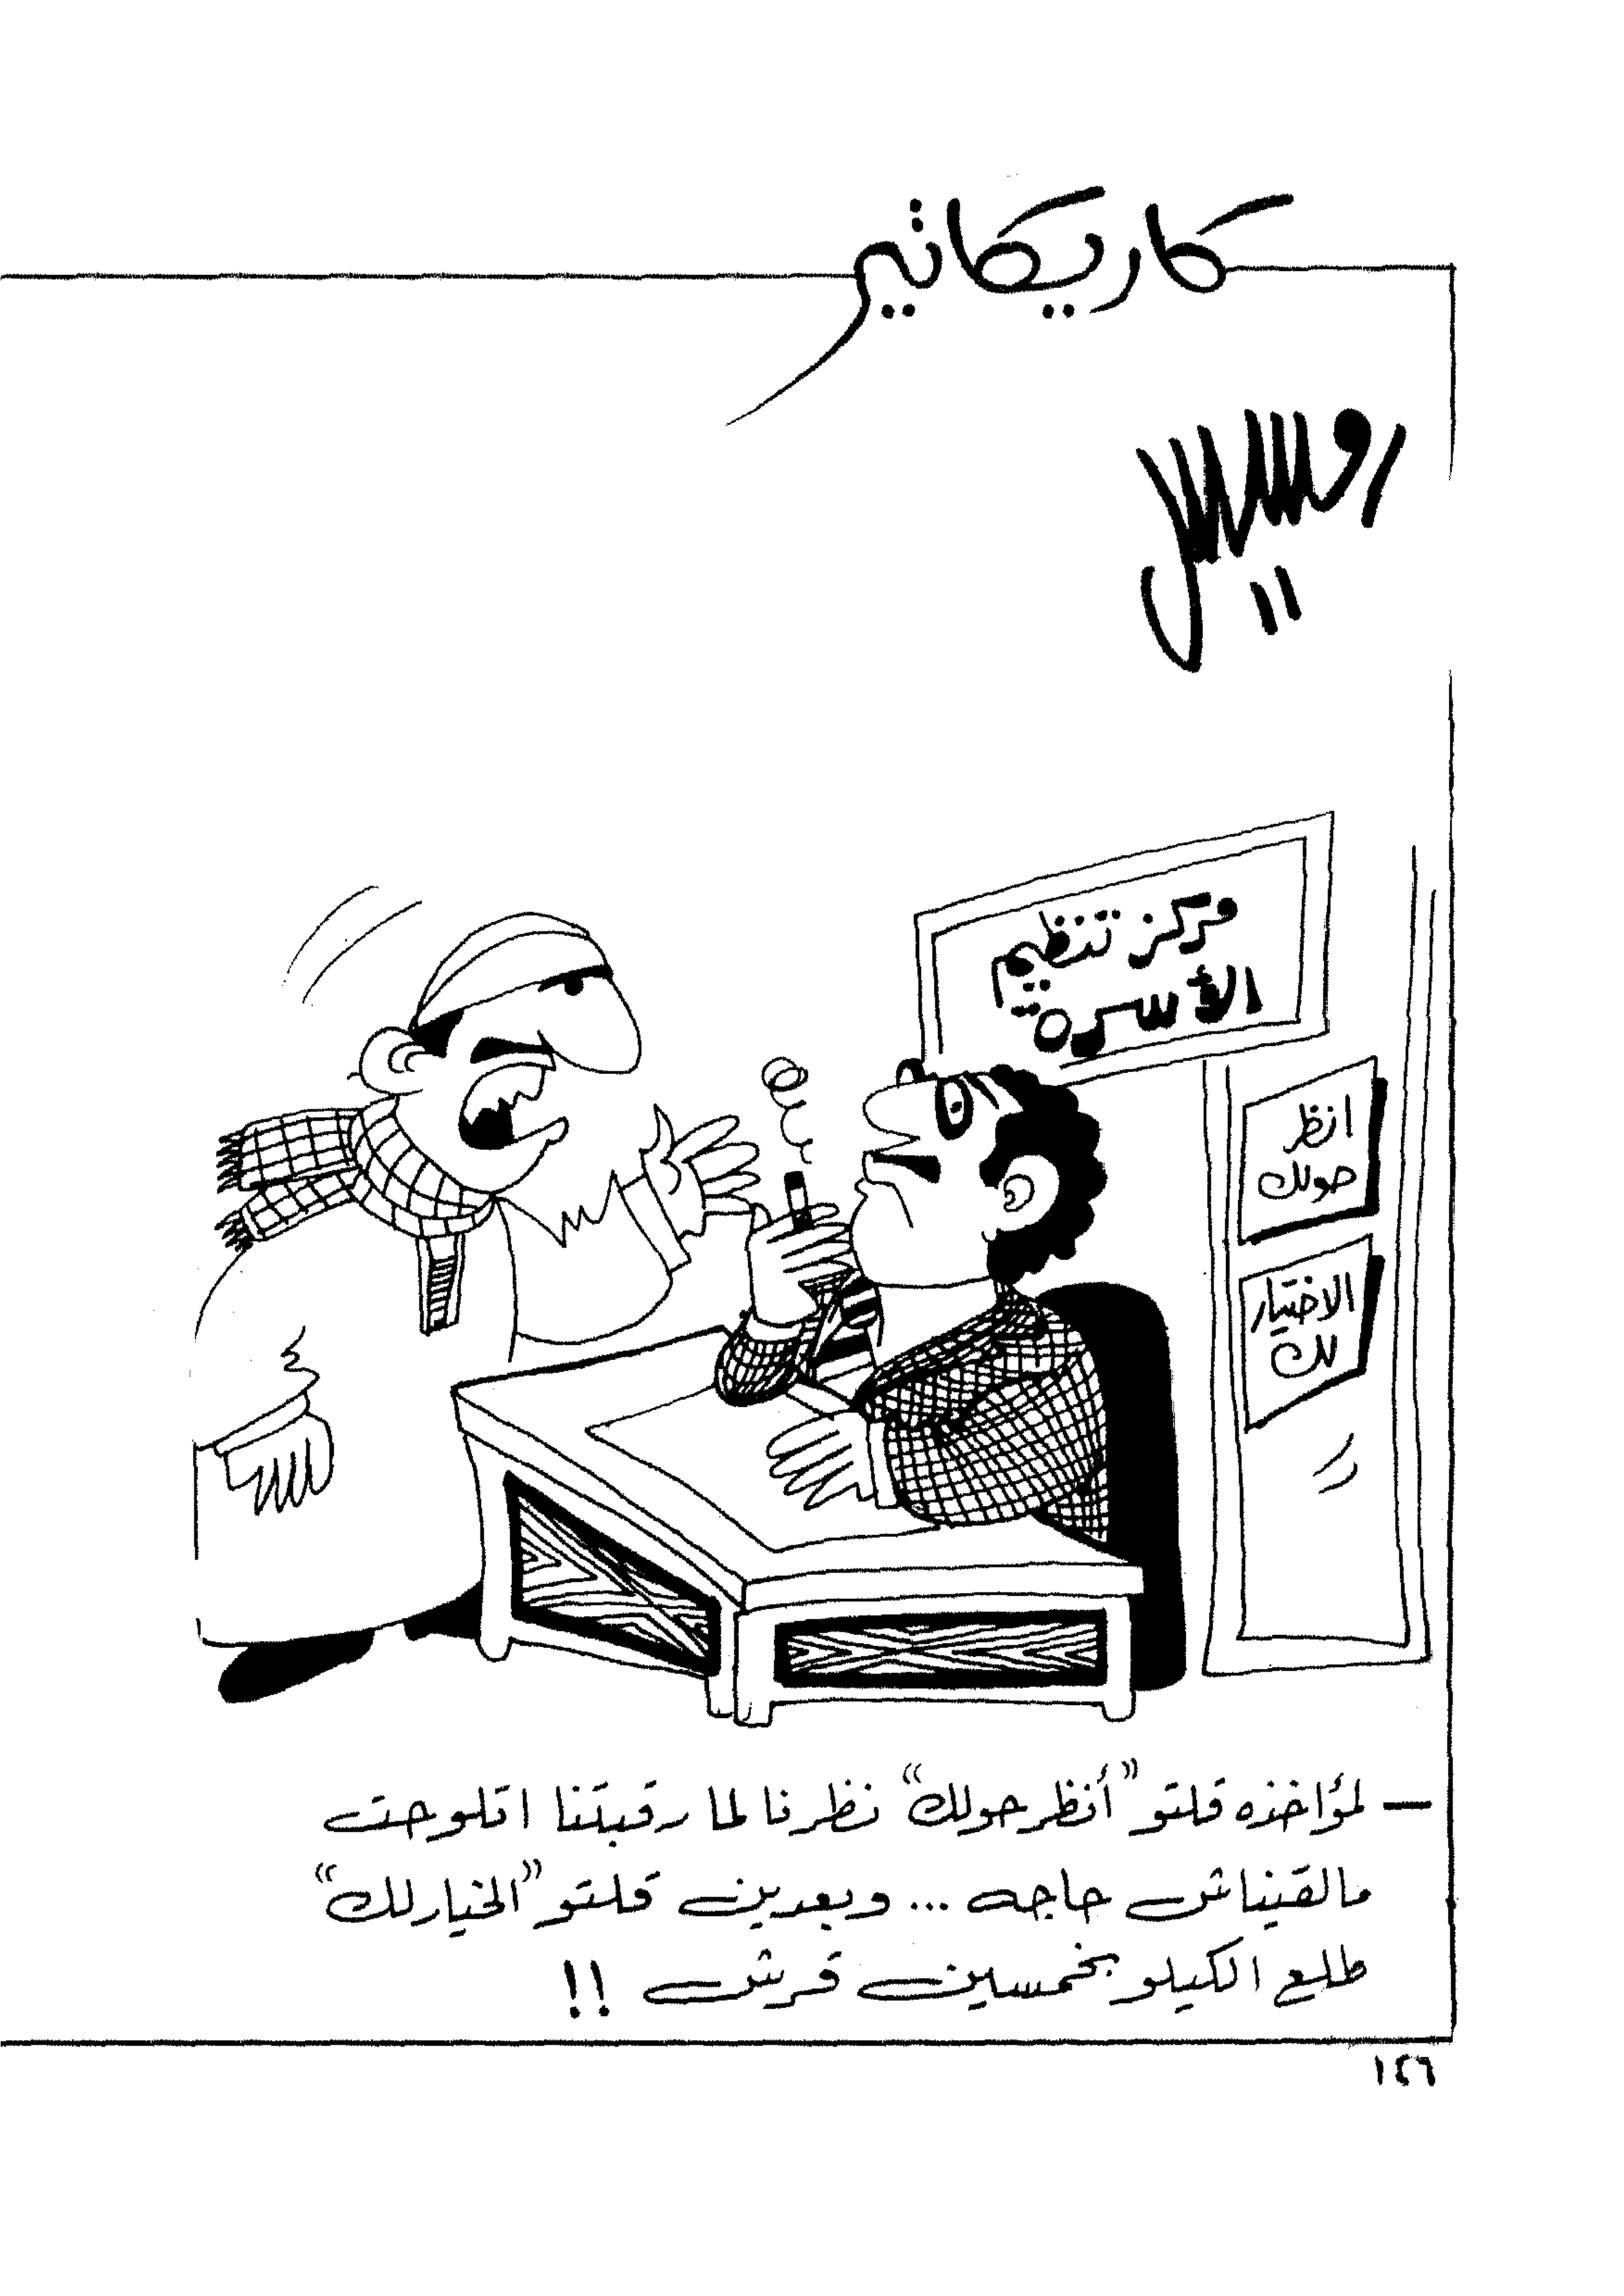 كاريكاتير
رمسيس
مركز تنظيم
الأسرة
انظر
حولك
الاختيار
لك
— لمؤاخذه قلتو "أنظر حولك" نظرنا لما رقبتنا اتلوحت
مالقيناش حاجه ... وبعدين قلتو "الخيار لك"
طلع الكيلو بخمسين قرش !!
١٤٦